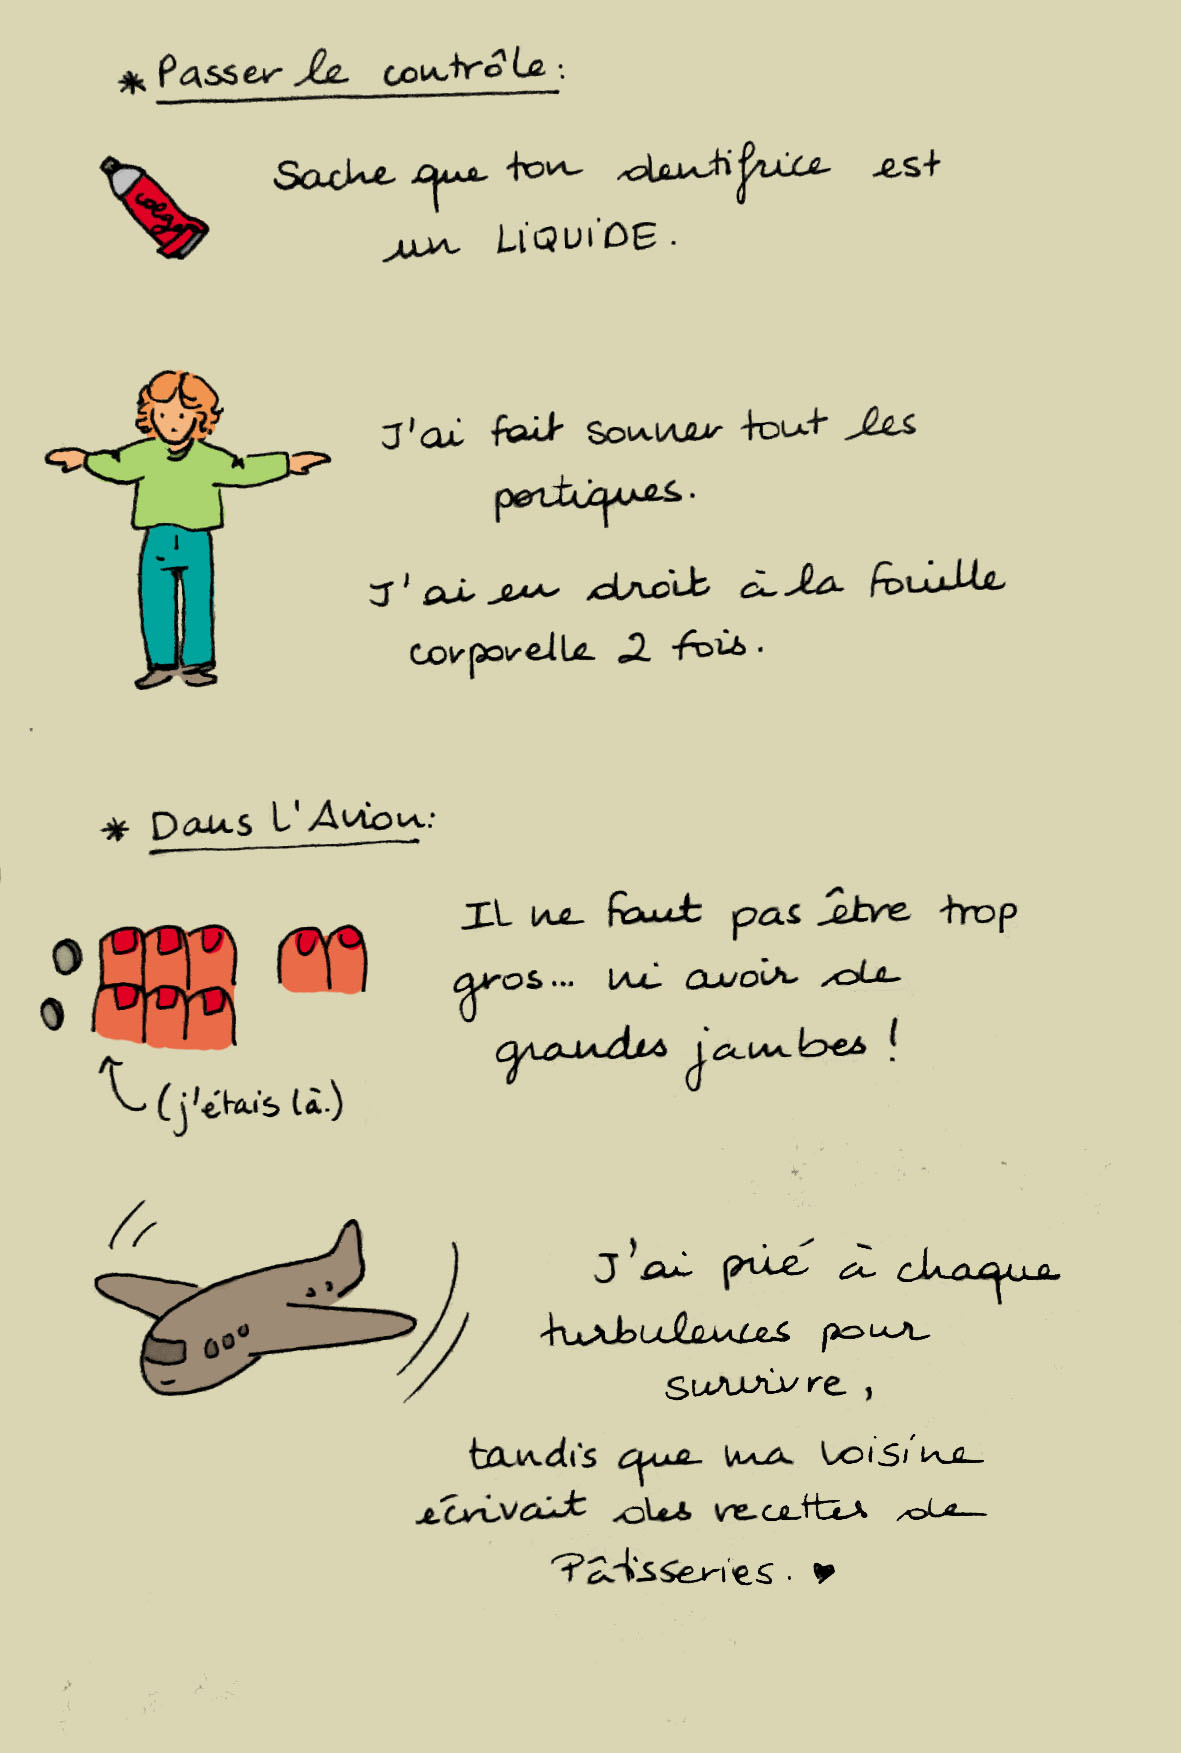 * Passer le contrôle:
Sache que ton dentifrice est
un LiQUiDE.
J'ai fait sonner tout les
portiques.
J'ai eu droit à la fouille
corporelle 2 fois.
* Dans l'Avion:
Il ne faut pas être trop
gros... ni avoir de
grandes jambes!
(j'étais là.)
J'ai prié à chaque
turbulences pour
survivre,
tandis que ma voisine
écrivait des recettes de
Pâtisseries. ♥